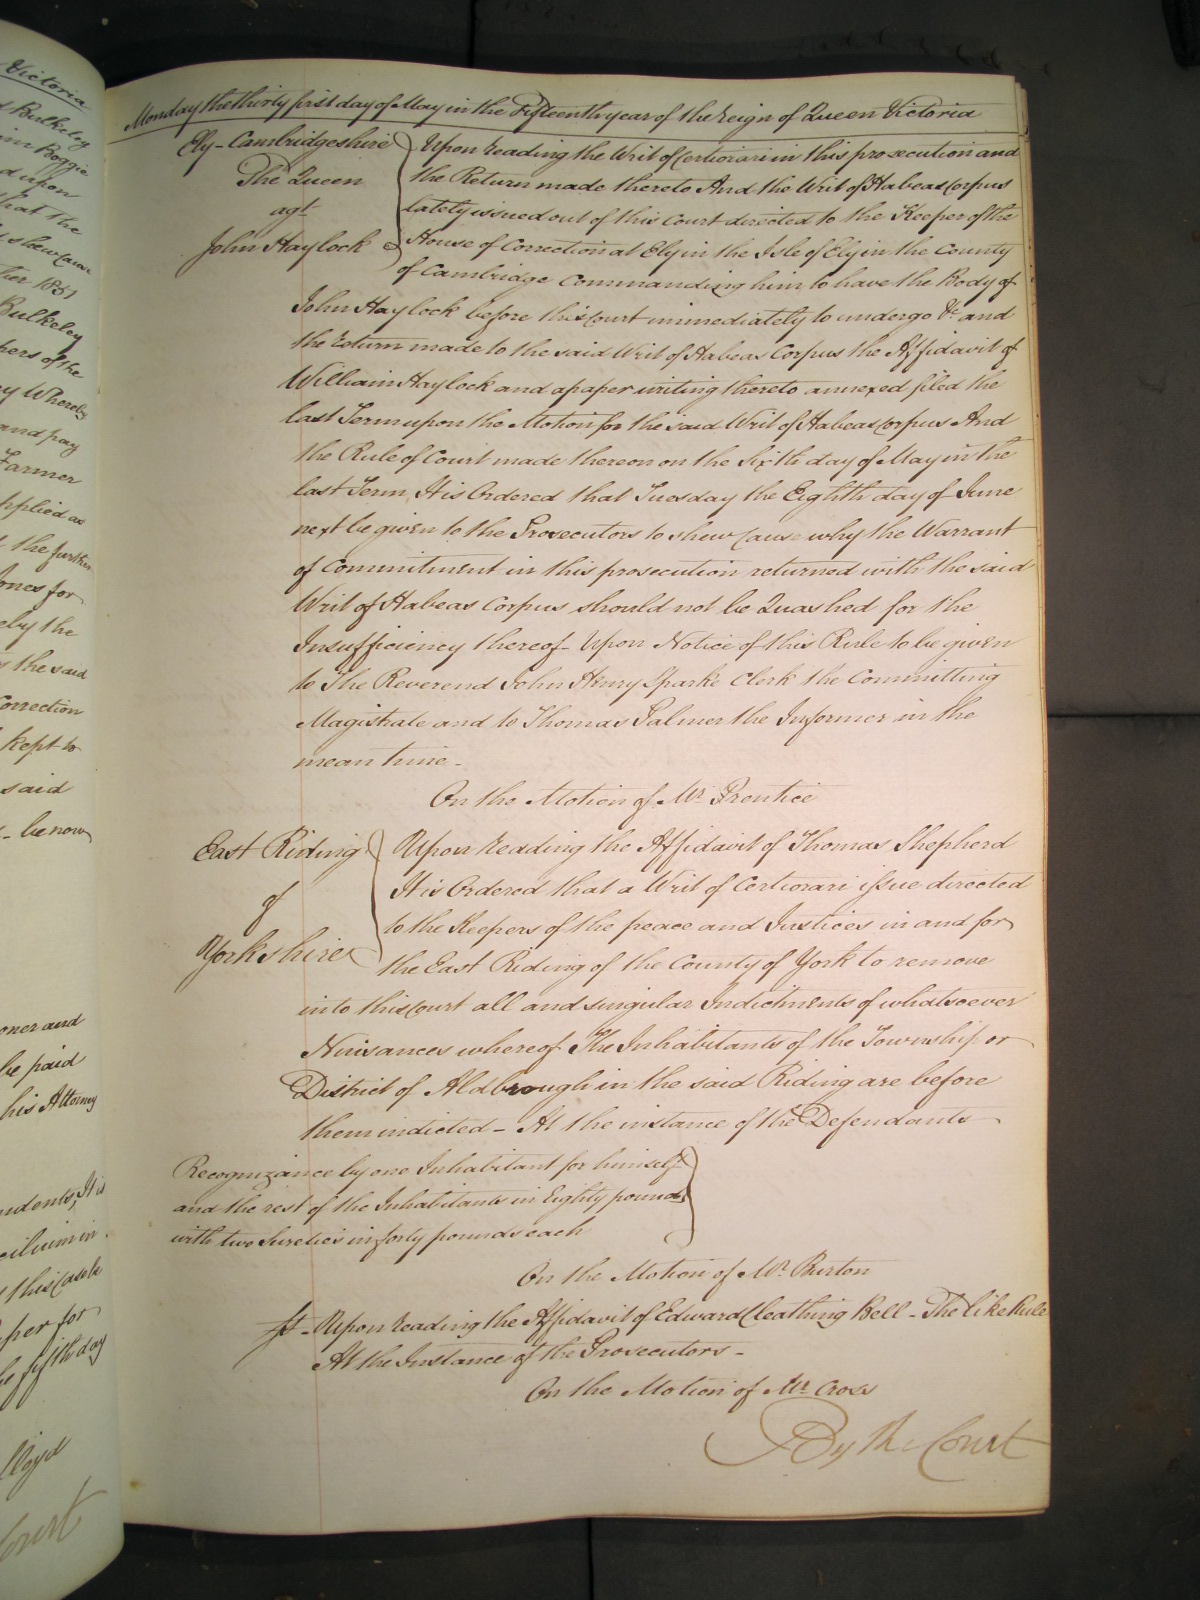 Victoria
Bulkeley
Boggie
upon
that the
shew Cause
1851
Bulkeley
of the
Whereby
and pay
Farmer
applied as
the further
Jones for
by the
the said
Correction
kept to
said
be now
and
be paid
his Attorney
It is
in
this Case be
for
fifth day
Lloyd
Court
Monday the thirty first day of May in the Fifteenth year of the reign of Queen Victoria
Ely - Cambridgeshire
The Queen
agt
John Haylock
Upon reading the Writ of Certiorari in this prosecution and
the Return made thereto And the Writ of Habeas Corpus
lately issued out of this Court directed to the Keeper of the
House of Correction at Ely in the Isle of Ely in the County
of Cambridge Commanding him to have the Body of
John Haylock before this Court immediately to undergo &c and
the return made to the said Writ of Habeas Corpus the Affidavit of
William Haylock and a paper writing thereto annexed filed the
last Term upon the Motion for the said Writ of Habeas Corpus And
the Rule of Court made thereon on the Sixth day of May in the
last Term, It is Ordered that Tuesday the Eighth day of June
next be given to the Prosecutors to shew Cause why the Warrant
of Commitment in this prosecution returned with the said
Writ of Habeas Corpus should not be Quashed for the
Insufficiency thereof - Upon Notice of this Rule to be given
to The Reverend John Henry Sparke Clerk the Committing
Magistrate and to Thomas Palmer the Informer in the
mean time -
On the Motion of Mr Prentice
East Riding
of
Yorkshire
Upon reading the Affidavit of Thomas Shepherd
It is Ordered that a Writ of Certiorari issue directed
to the Keepers of the peace and Justices in and for
the East Riding of the County of York to remove
into this Court all and singular Indictments of whatsoever
Nuisances whereof The Inhabitants of the Township or
District of Aldbrough in the said Riding are before
them indicted - At the instance of the Defendants
Recognizance by one Inhabitant for himself
and the rest of the Inhabitants in Eighty pounds
with two Sureties in forty pounds each
On the Motion of Mr Burton
St - Upon reading the Affidavit of Edward Cleathing Bell - The like Rule
At the Instance of the Prosecutors -
On the Motion of Mr Cross
By the Court